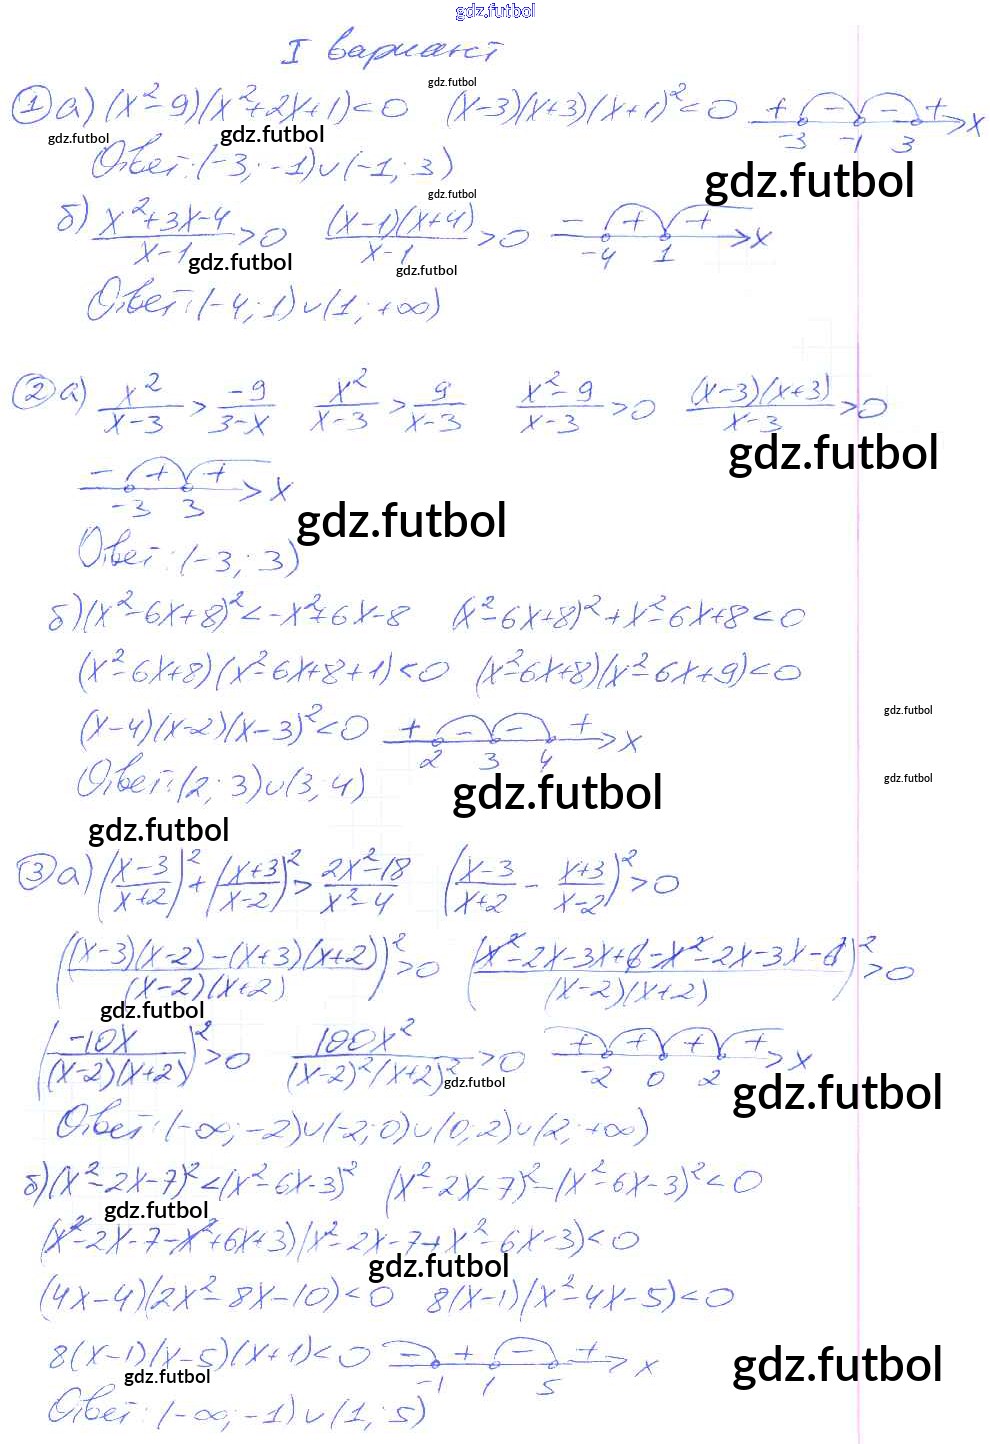 gdz.futbol
I вариант
gdz.futbol
① а) (x²-9)(x²+2x+1)<0 (x-3)(x+3)(x+1)²<0 + - - + -3 -1 3 x
gdz.futbol gdz.futbol
Ответ: (-3; -1)∪(-1; 3)
gdz.futbol
gdz.futbol
б) (x²+3x-4)/(x-1)>0 ((x-1)(x+4))/(x-1)>0 - + + -4 1 x
gdz.futbol gdz.futbol
Ответ: (-4; 1)∪(1; +∞)
② а) x²/(x-3) > -9/(3-x) x²/(x-3) > 9/(x-3) (x²-9)/(x-3)>0 ((x-3)(x+3))/(x-3)>0
gdz.futbol
- + + -3 3 x
gdz.futbol
Ответ: (-3; 3)
б) (x²-6x+8)²<-x²+6x-8 (x²-6x+8)²+x²-6x+8<0
(x²-6x+8)(x²-6x+8+1)<0 (x²-6x+8)(x²-6x+9)<0
gdz.futbol
(x-4)(x-2)(x-3)²<0 + - - + 2 3 4 x
Ответ: (2; 3)∪(3; 4)
gdz.futbol gdz.futbol
gdz.futbol
③ а) ((x-3)/(x+2))²+((x+3)/(x-2))²>(2x²-18)/(x²-4) ((x-3)/(x+2) - (x+3)/(x-2))²>0
(((x-3)(x-2)-(x+3)(x+2))/((x-2)(x+2)))²>0 ((x²-2x-3x+6-x²-2x-3x-6)/((x-2)(x+2)))²>0
gdz.futbol
(-10x/((x-2)(x+2)))²>0 100x²/((x-2)²(x+2)²)>0 + + + + -2 0 2 x
gdz.futbol gdz.futbol
Ответ: (-∞; -2)∪(-2; 0)∪(0; 2)∪(2; +∞)
б) (x²-2x-7)²<(x²-6x-3)² (x²-2x-7)²-(x²-6x-3)²<0
gdz.futbol
(x²-2x-7-x²+6x+3)(x²-2x-7+x²-6x-3)<0
gdz.futbol
(4x-4)(2x²-8x-10)<0 8(x-1)(x²-4x-5)<0
8(x-1)(x-5)(x+1)<0 - + - + -1 1 5 x
gdz.futbol gdz.futbol
Ответ: (-∞; -1)∪(1; 5)